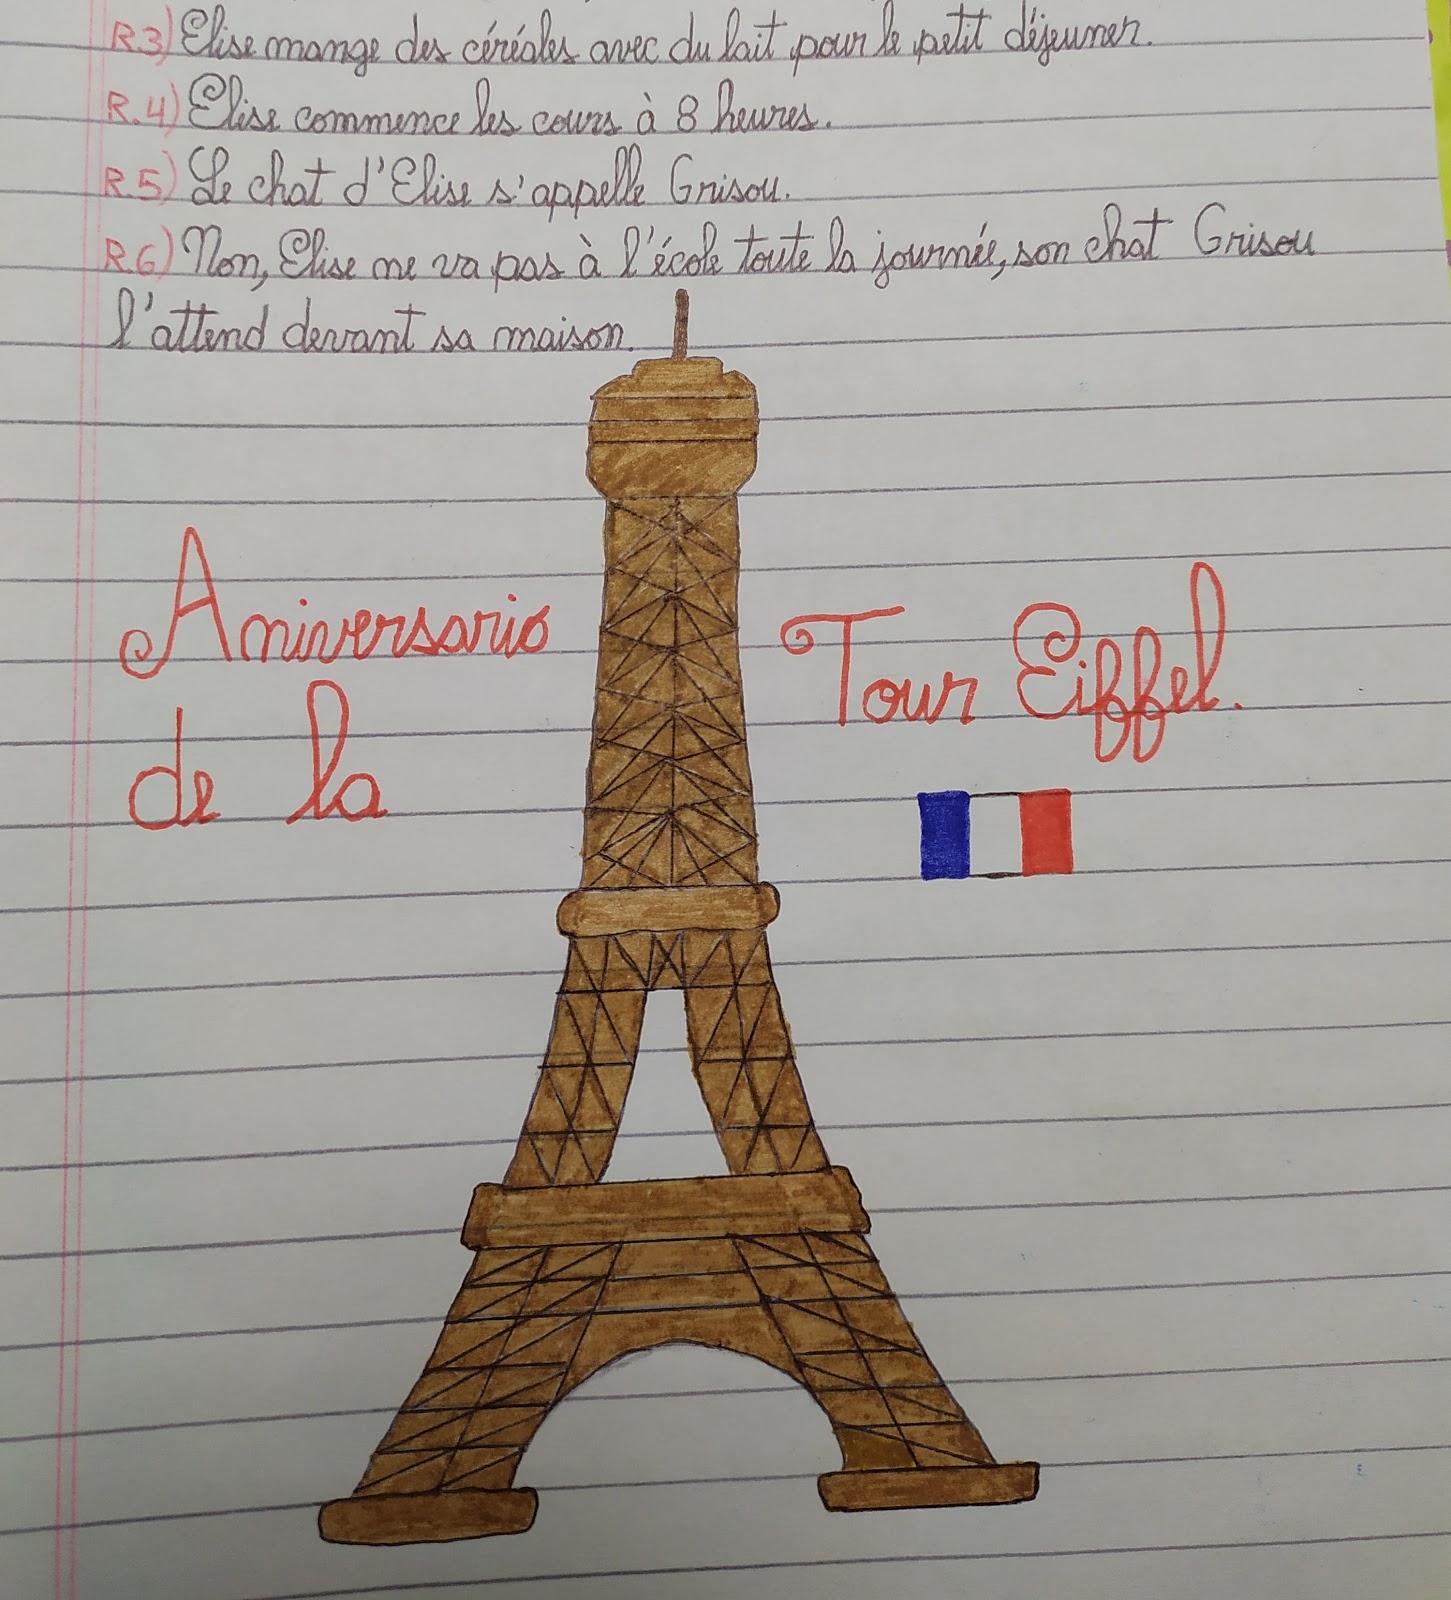 R.3) Elise mange des céréales avec du lait pour le petit déjeuner.
R.4) Elise commence les cours à 8 heures.
R.5) Le chat d'Elise s'appelle Grisou.
R.6) Non, Elise ne va pas à l'école toute la journée, son chat Grisou
l'attend devant sa maison.
Aniversario
de la
Tour Eiffel.